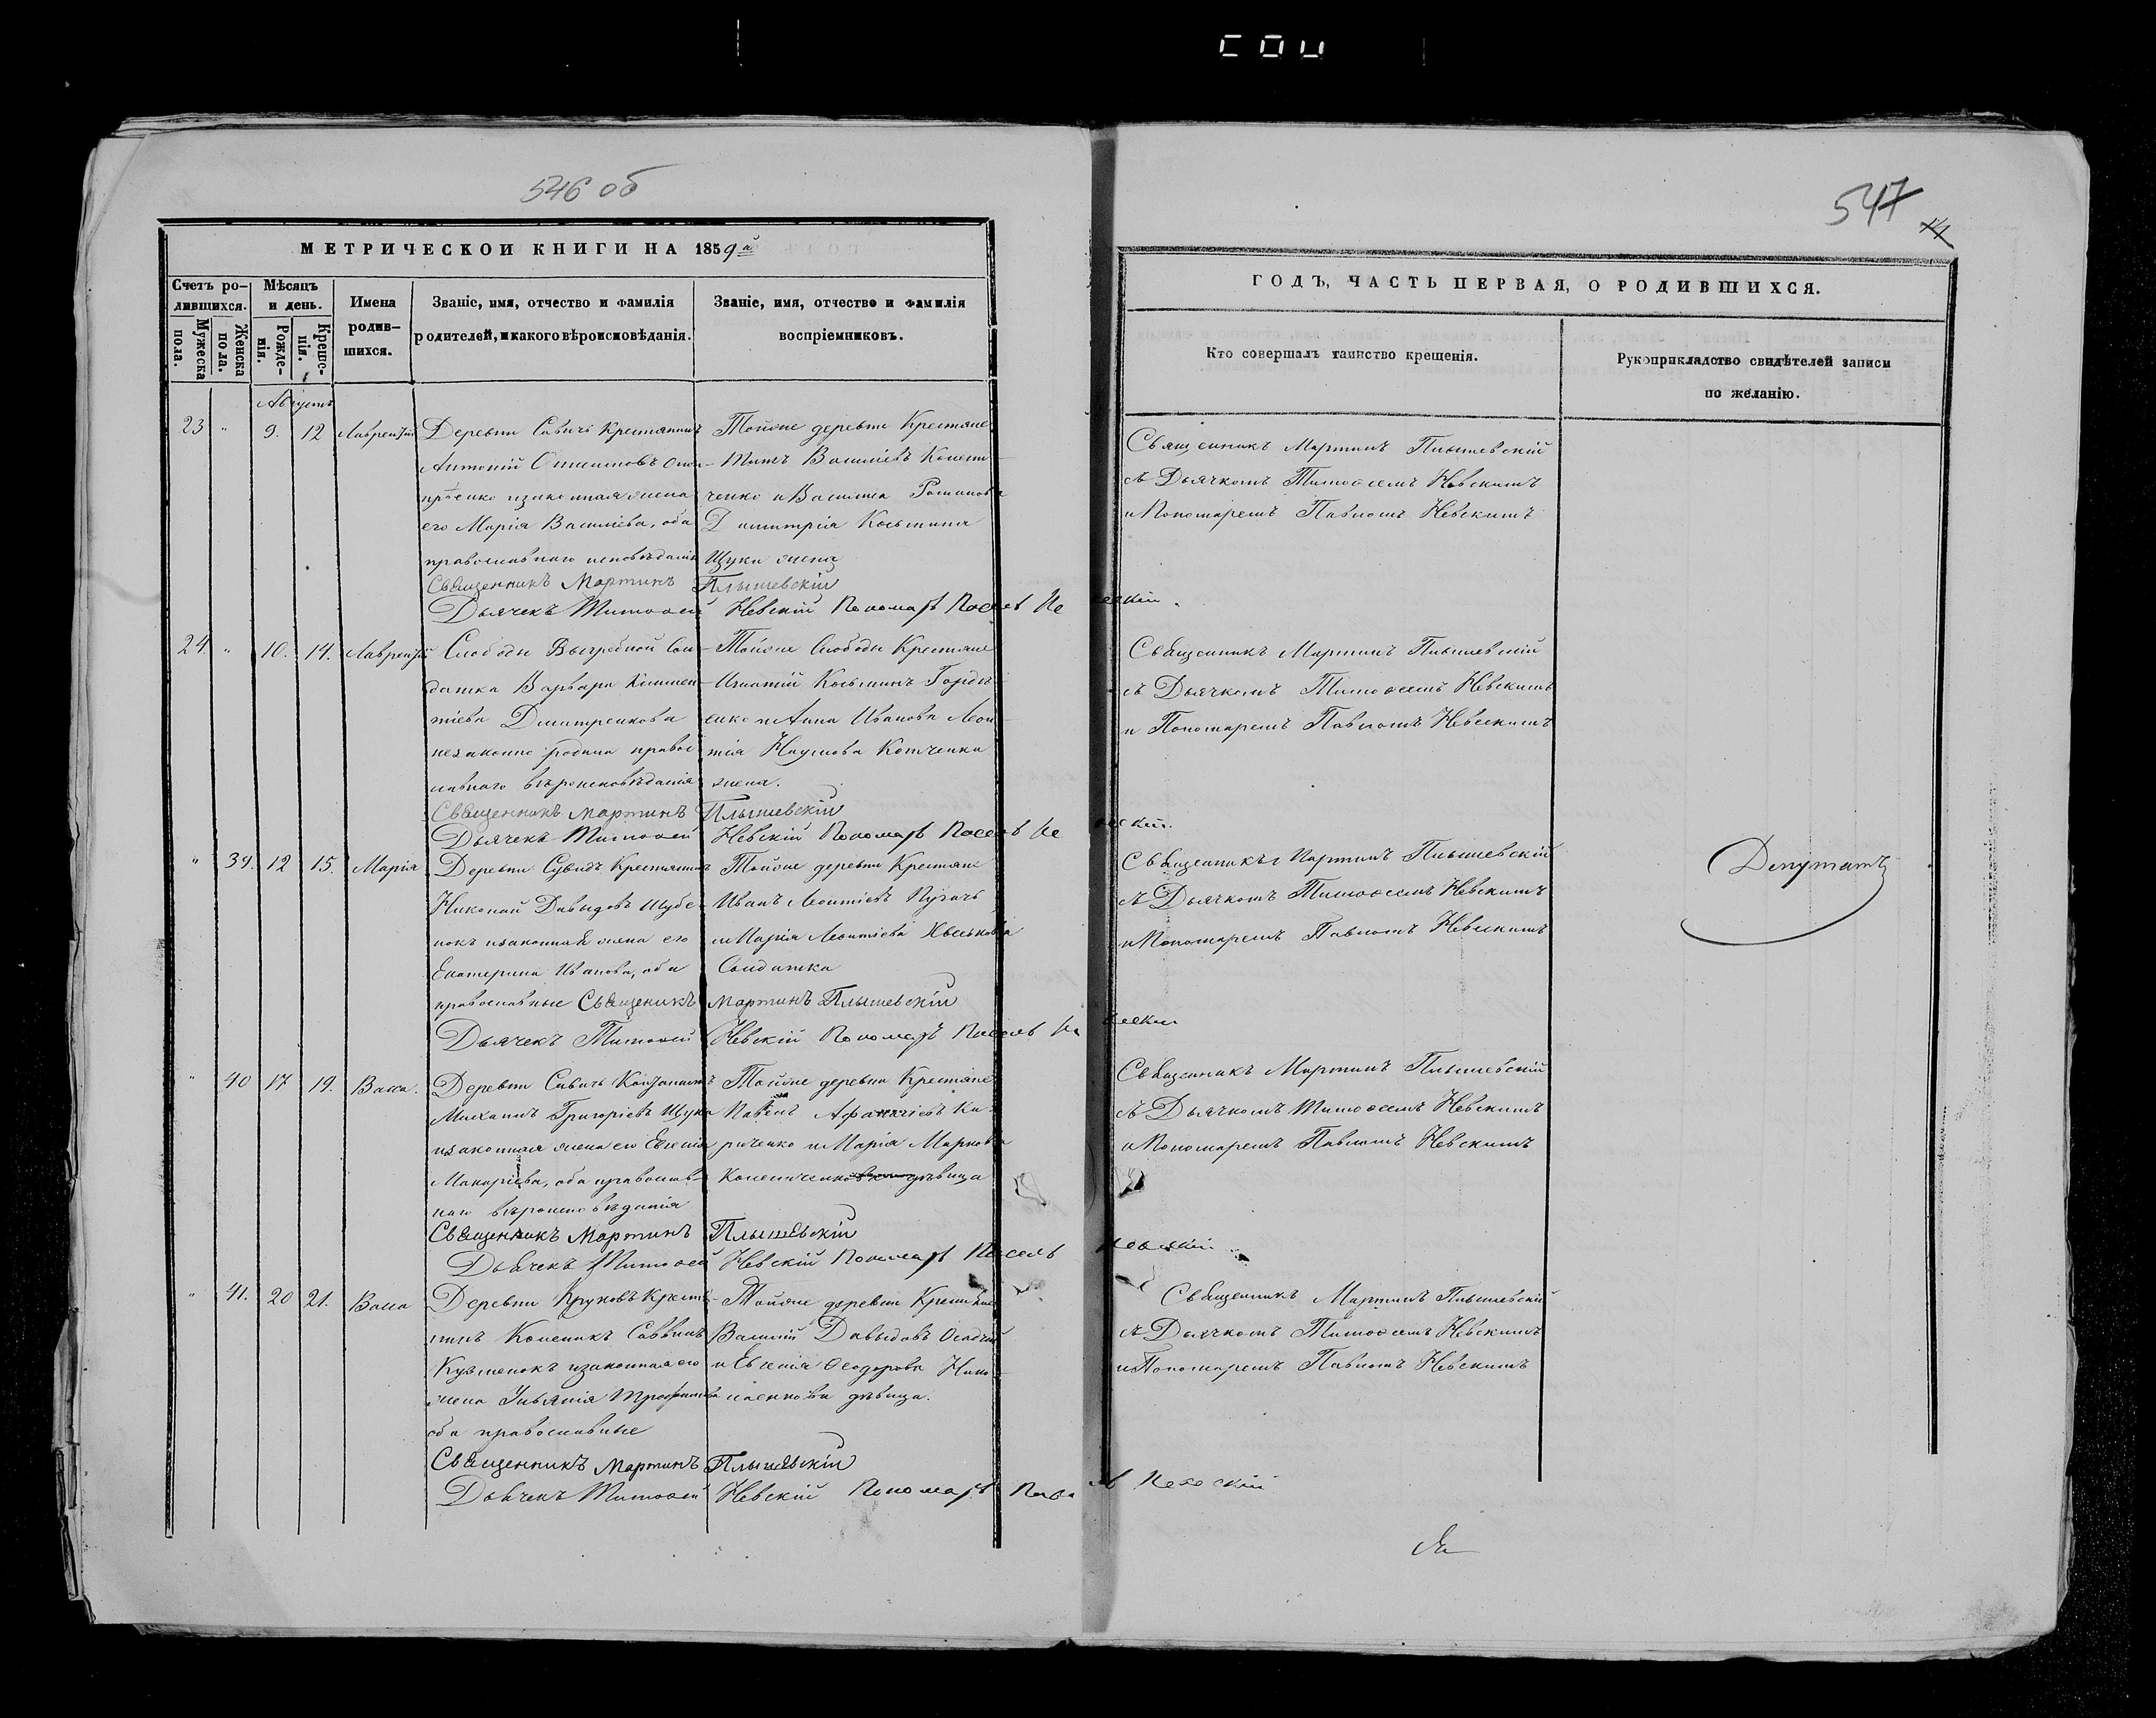 546 об
МЕТРИЧЕСКОИ КНИГИ НА 1859й
Счетъ ро-
дившихся.
Мужеска
пола.
Женска
пола.
Мѣсяцъ
и день.
Рожде-
нія.
Креще-
нія.
Имена
родив-
шихся.
Званіе, имя, отчество и фамилія
родителей, и какого вѣроисповѣданія.
Званіе, имя, отчество и фамилія
воспріемниковъ.
Августъ
23 " 9. 12 Лаврентій
Деревни Савичь Крестьянинъ
Антоній
и законная жена
его Марія Василіева, оба
православнаго исповѣданія
Тойже деревни Крестьяне
Титъ Василіевъ Конет-
ченко и Василиса Романова
Димитрія Косьмина
Щуки жена
Священникъ Мартинъ Плышевскій
Дьячекъ Тимофей Невскій Пономарь Павелъ Невскій.
24. " 10. 14. Лаврентій
Слободы Выгребной Сол-
датка Варвара Климен-
тіева Дмитренкова
незаконно родила правос-
лавнаго вѣроисповѣданія
Тойже Слободы Крестьяне
Игнатій Косьминъ Горди-
енко и Анна Иванова Леон-
тія Наумова Котченка
жена.
Священникъ Мартинъ Плышевскій
Дьячекъ Тимофей Невскій Пономарь Павелъ Невскій.
" 39. 12 15. Марія
Деревни Сувидъ Крестьянинъ
Николай Давыдовъ Шубе-
нокъ и законная жена его
Екатерина Иванова, оба
православные
Тойже деревни Крестьяне
Иванъ Леонтіевъ Пугачь
и Марія Леонтіева
Солдатка
Священикъ Мартинъ Плышевскій
Дьячекъ Тимофей Невскій Пономарь Павелъ Невскій
" 40 17 19. Васса.
Деревни Савичь
Михаилъ Григоріевъ Щука
и законная жена его Евгенія
Макаріева, оба православ-
наго вѣроисповѣданія
Тойже деревни Крестьяне
Павелъ Ки-
риченко и Марія Маркова
дѣвица
Священникъ Мартинъ Плышевскій
Дьячекъ Тимофей Невскій Пономарь Павелъ Невскій.
" 41. 20 21. Васса
Деревни Круковъ Крестья-
нинъ Саввинъ
Кузменокъ и законная его
жена Ульянія Трофимова
оба православные
Тойже деревни Крестьяне
Василій Давыдовъ Осадчій
и Евгенія Феодорова Нико-
лаенкова дѣвица.
Священникъ Мартинъ Плышевскій
Дьячекъ Тимофей Невскій Пономарь Павелъ Невскій
547
ГОДЪ, ЧАСТЬ ПЕРВАЯ, О РОДИВШИХСЯ.
Кто совершалъ таинство крещенія.
Рукоприкладство свидѣтелей записи
по желанію.
Священникъ Мартинъ Плышевскій
съ Дьячкомъ Тимофеемъ Невскимъ
и Пономаремъ Павломъ Невскимъ
Священникъ Мартинъ Плышевскій
съ Дьячкомъ Тимофеемъ Невскимъ
и Пономаремъ Павломъ Невскимъ
Священникъ Мартинъ Плышевскій
съ Дьячкомъ Тимофеемъ Невскимъ
и Пономаремъ Павломъ Невскимъ
Депутатъ
Священникъ Мартинъ Плышевскій
съ Дьячкомъ Тимофеемъ Невскимъ
и Пономаремъ Павломъ Невскимъ
Священникъ Мартинъ Плышевскій
съ Дьячкомъ Тимофеемъ Невскимъ
и Пономаремъ Павломъ Невскимъ